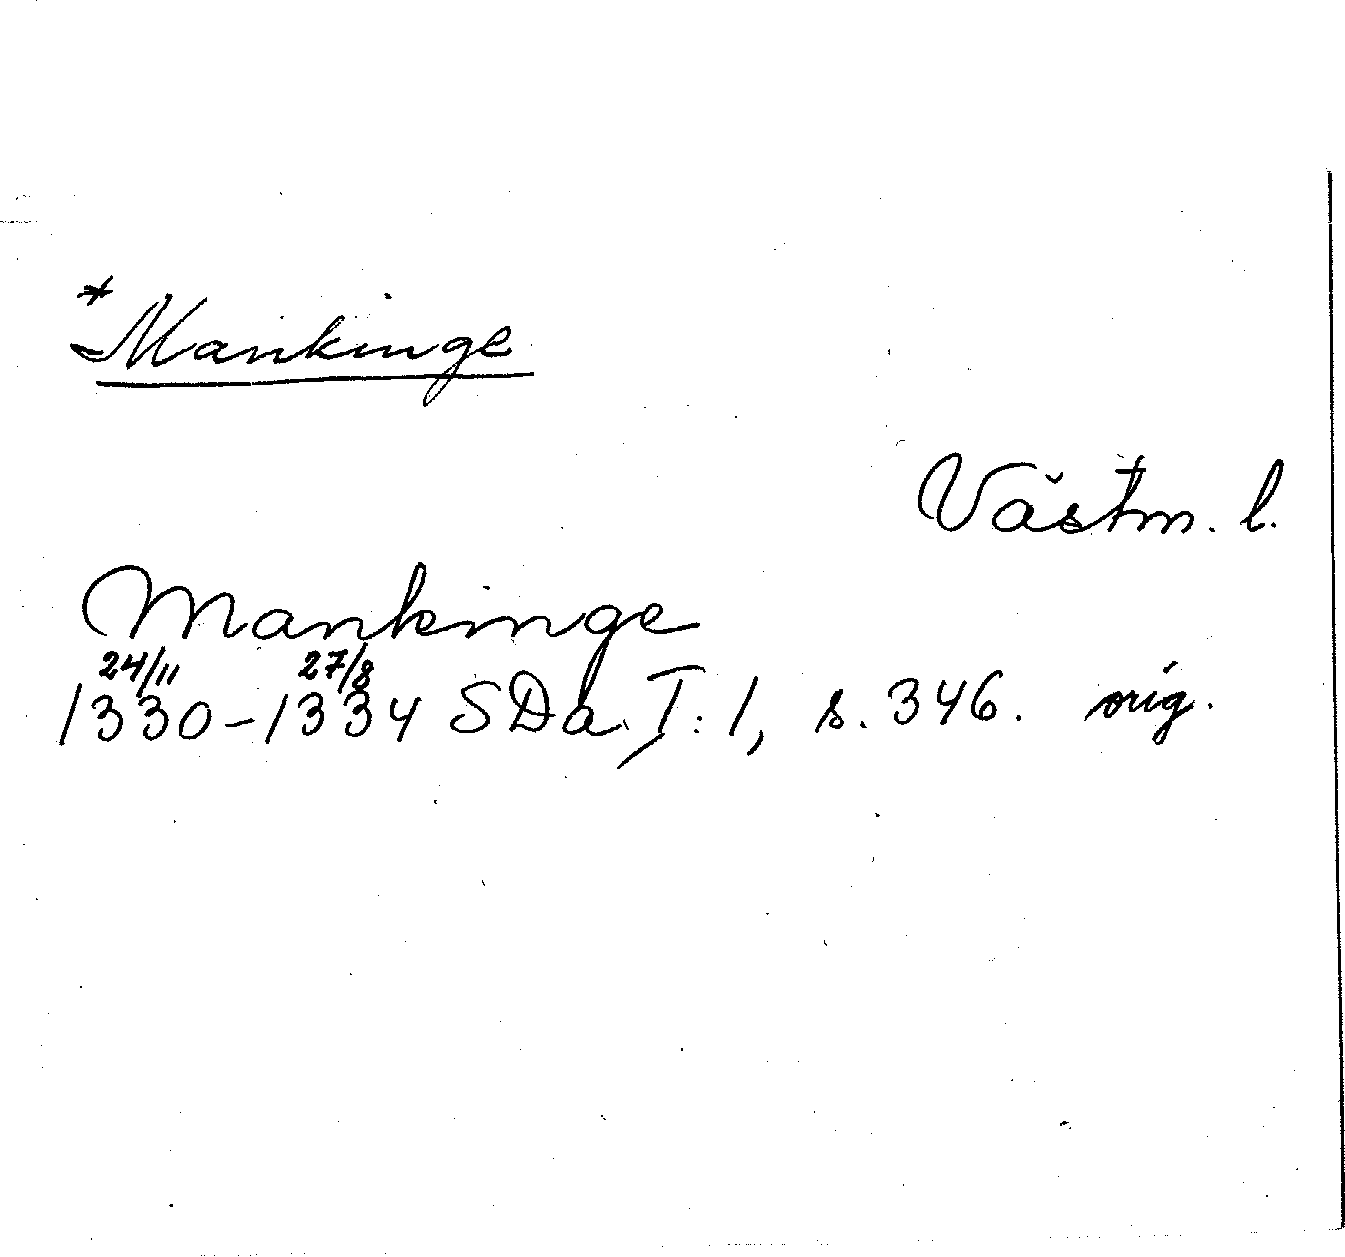 *Mankinge
Västm. l.
Mankinge
24/11 27/8
1330-1334 SDa. I: 1, s. 346. orig.